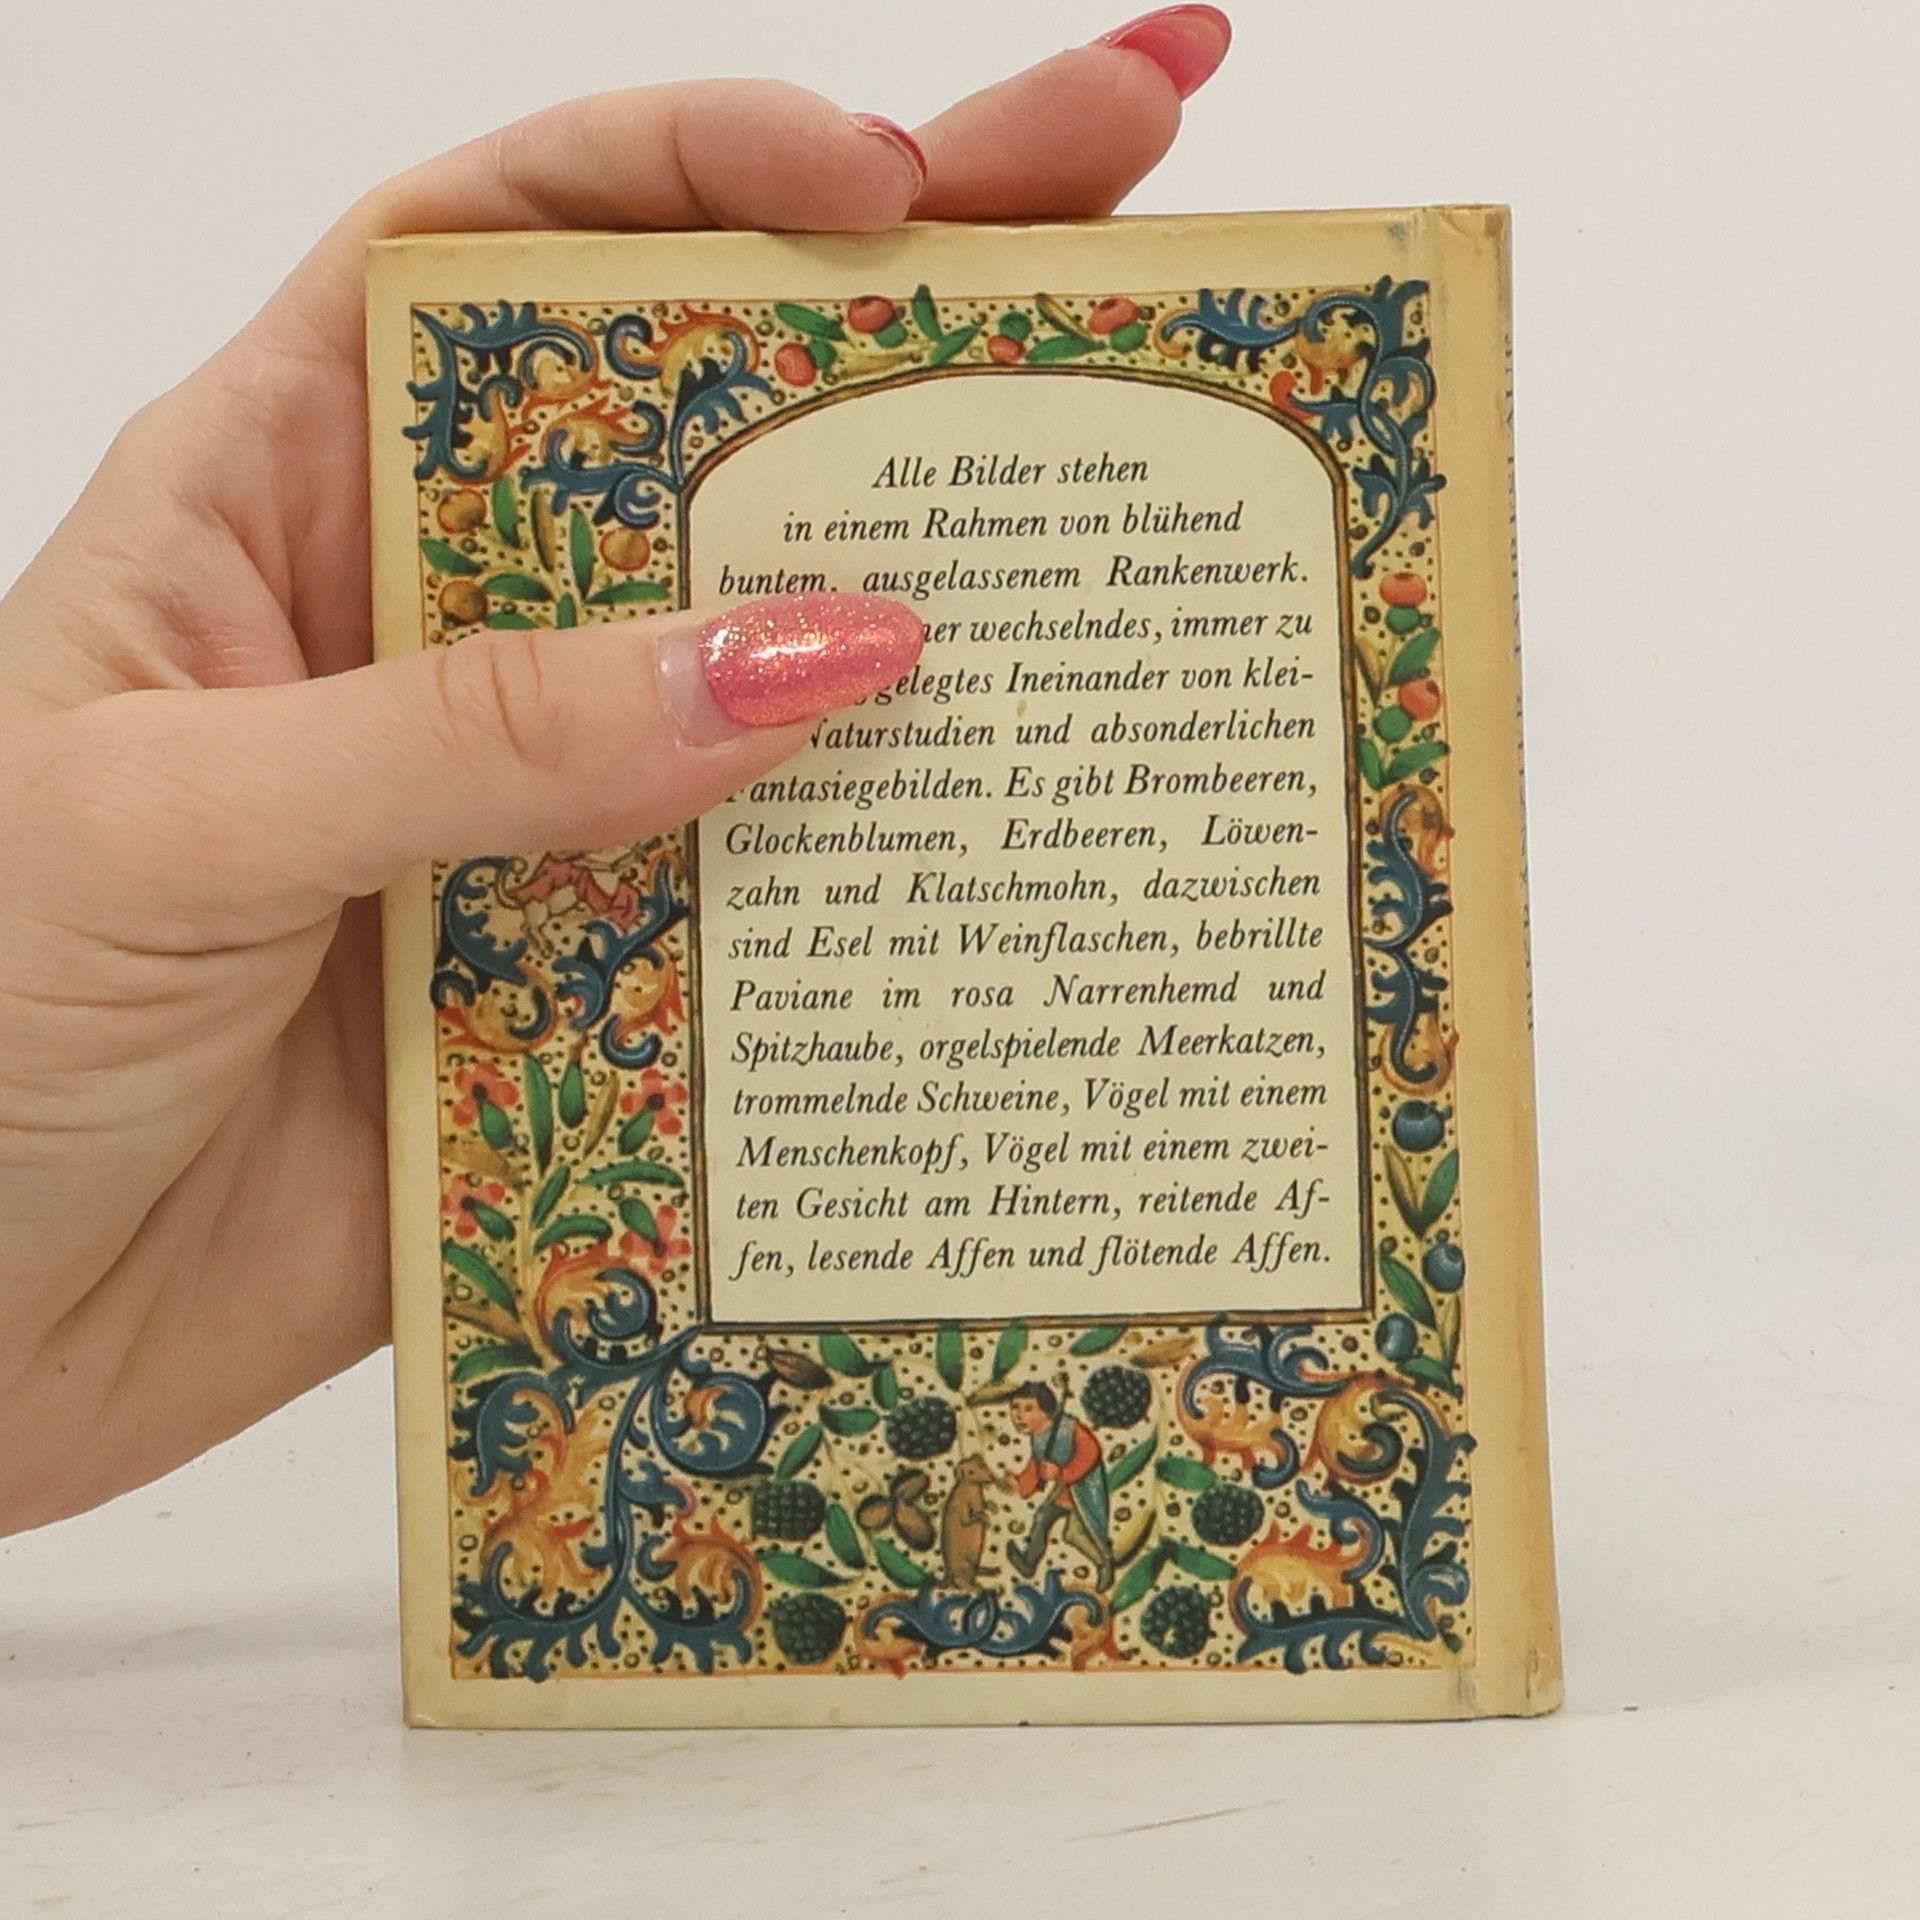 Alle Bilder stehen
in einem Rahmen von blühend
buntem, ausgelassenem Rankenwerk.
wechselndes, immer zu
Ineinander von klei-
Naturstudien und absonderlichen
Fantasiegebilden. Es gibt Brombeeren,
Glockenblumen, Erdbeeren, Löwen-
zahn und Klatschmohn, dazwischen
sind Esel mit Weinflaschen, bebrillte
Paviane im rosa Narrenhemd und
Spitzhaube, orgelspielende Meerkatzen,
trommelnde Schweine, Vögel mit einem
Menschenkopf, Vögel mit einem zwei-
ten Gesicht am Hintern, reitende Af-
fen, lesende Affen und flötende Affen.